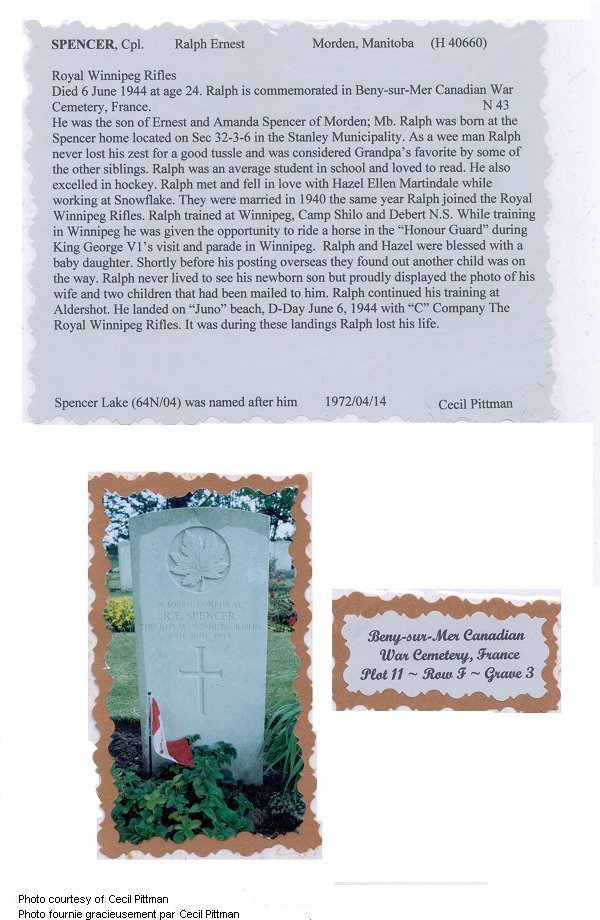 SPENCER, Cpl. Ralph Ernest Morden, Manitoba (H 40660)
Royal Winnipeg Rifles
Died 6 June 1944 at age 24. Ralph is commemorated in Beny-sur-Mer Canadian War
Cemetery, France. N 43
He was the son of Ernest and Amanda Spencer of Morden; Mb. Ralph was born at the
Spencer home located on Sec 32-3-6 in the Stanley Municipality. As a wee man Ralph
never lost his zest for a good tussle and was considered Grandpa's favorite by some of
the other siblings. Ralph was an average student in school and loved to read. He also
excelled in hockey. Ralph met and fell in love with Hazel Ellen Martindale while
working at Snowflake. They were married in 1940 the same year Ralph joined the Royal
Winnipeg Rifles. Ralph trained at Winnipeg, Camp Shilo and Debert N.S. While training
in Winnipeg he was given the opportunity to ride a horse in the “Honour Guard” during
King George V1's visit and parade in Winnipeg. Ralph and Hazel were blessed with a
baby daughter. Shortly before his posting overseas they found out another child was on
the way. Ralph never lived to see his newborn son but proudly displayed the photo of his
wife and two children that had been mailed to him. Ralph continued his training at
Aldershot. He landed on “Juno” beach, D-Day June 6, 1944 with “C” Company The
Royal Winnipeg Rifles. It was during these landings Ralph lost his life.
Spencer Lake (64N/04) was named after him 1972/04/14 Cecil Pittman
H 40660 CORPORAL
R.E. SPENCER
THE ROYAL WINNIPEG RIFLES
6TH JUNE 1944
Beny-sur-Mer Canadian
War Cemetery, France
Plot 11 ~ Row F ~ Grave 3
Photo courtesy of Cecil Pittman
Photo fournie gracieusement par Cecil Pittman